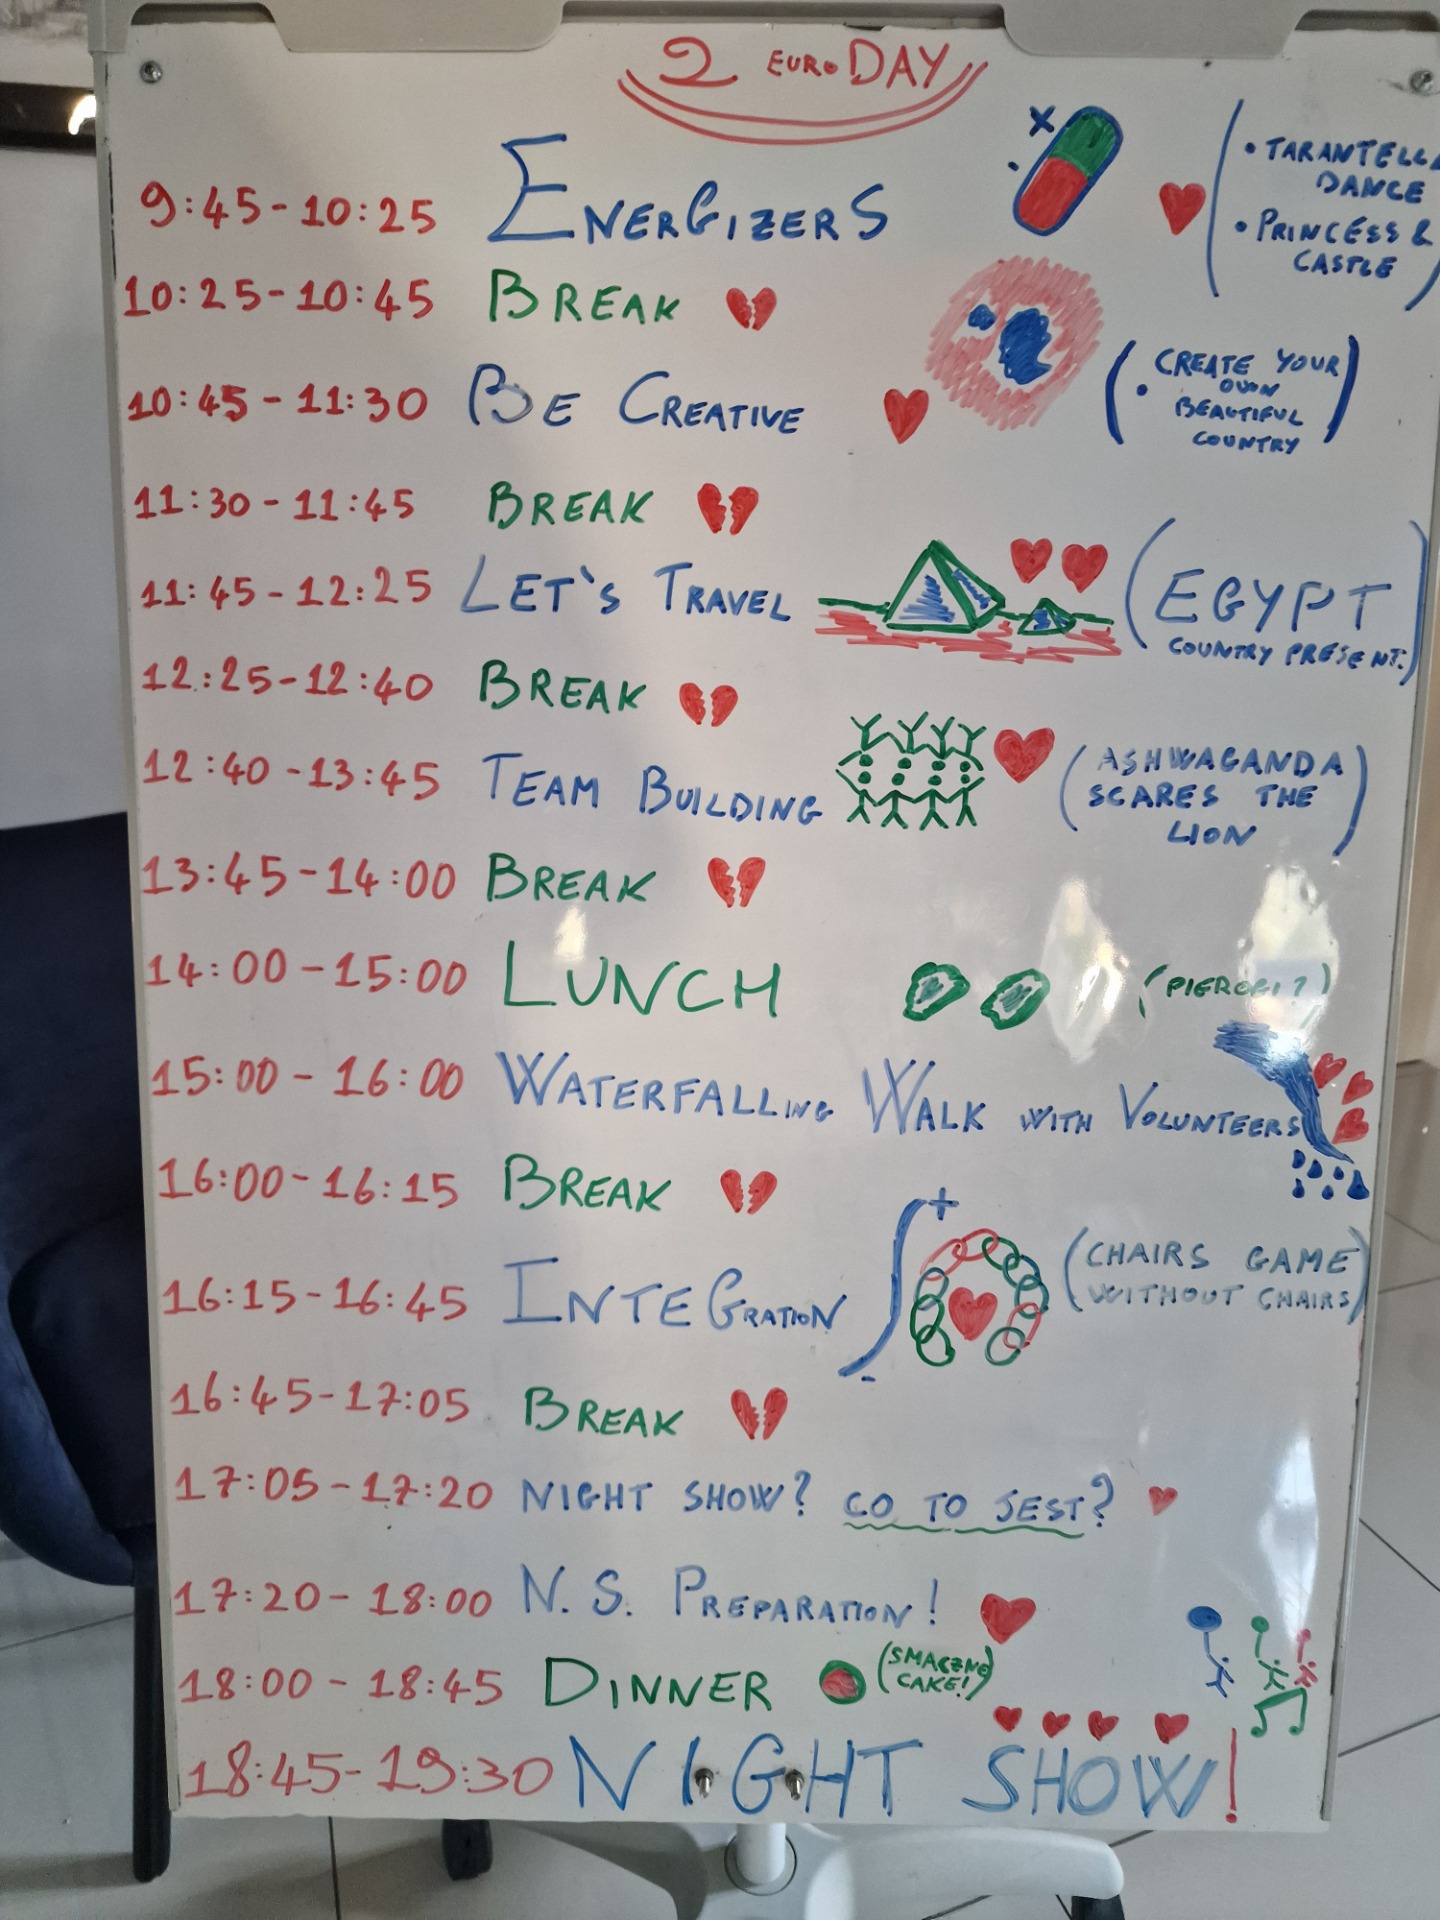 2 EURO DAY
9:45-10:25 ENERGIZERS
• TARANTELLA
DANCE
• PRINCESS &
CASTLE
10:25-10:45 BREAK
10:45-11:30 BE CREATIVE
(• CREATE YOUR
OWN
BEAUTIFUL
COUNTRY)
11:30-11:45 BREAK
11:45-12:25 LET'S TRAVEL
(EGYPT
COUNTRY PRESENT.)
12:25-12:40 BREAK
12:40-13:45 TEAM BUILDING
(ASHWAGANDA
SCARES THE
LION)
13:45-14:00 BREAK
14:00-15:00 LUNCH (PIEROGI?)
15:00-16:00 WATERFALLING WALK WITH VOLUNTEERS
16:00-16:15 BREAK
16:15-16:45 INTEGRATION
(CHAIRS GAME
WITHOUT CHAIRS)
16:45-17:05 BREAK
17:05-17:20 NIGHT SHOW? CO TO JEST?
17:20-18:00 N.S. PREPARATION!
18:00-18:45 DINNER
(SMACZNE
CAKE!)
18:45-19:30 NIGHT SHOW!